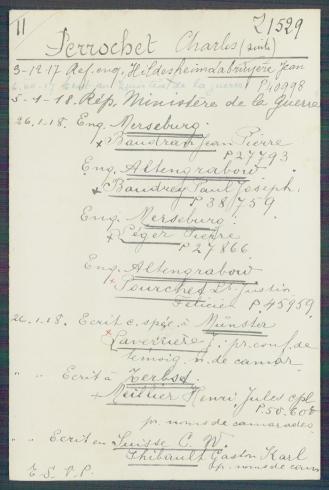 II
Z1529
Perrochet Charles (suite)
3-12-17 Ref. eng. Hildesheim Labruyère Jean
P40998
5-1-18. Rép. Ministère de la Guerre
26.1.18. Eng. Merseburg.
x Baudran Jean Pierre
P27793
Eng. Altengrabow
x Baudrey Paul Joseph.
P38759
Eng. Merseburg.
x Léger Pierre
P27866
Eng. Altengrabow
x Pourchet Lt Justin
Félicien P.45959
26.1.18. Ecrit c. spéc. à Münster
x Laverrière J. pr. conf. de
témoig. n. de camar.
" " Ecrit à Zerbst.
x Meillier Henri Jules cpl
P.50.608
pr. noms de camarades
" " Ecrit en Suisse C. W.
Thibault Gaston Karl
pr. noms de cam
T. S. V. P.